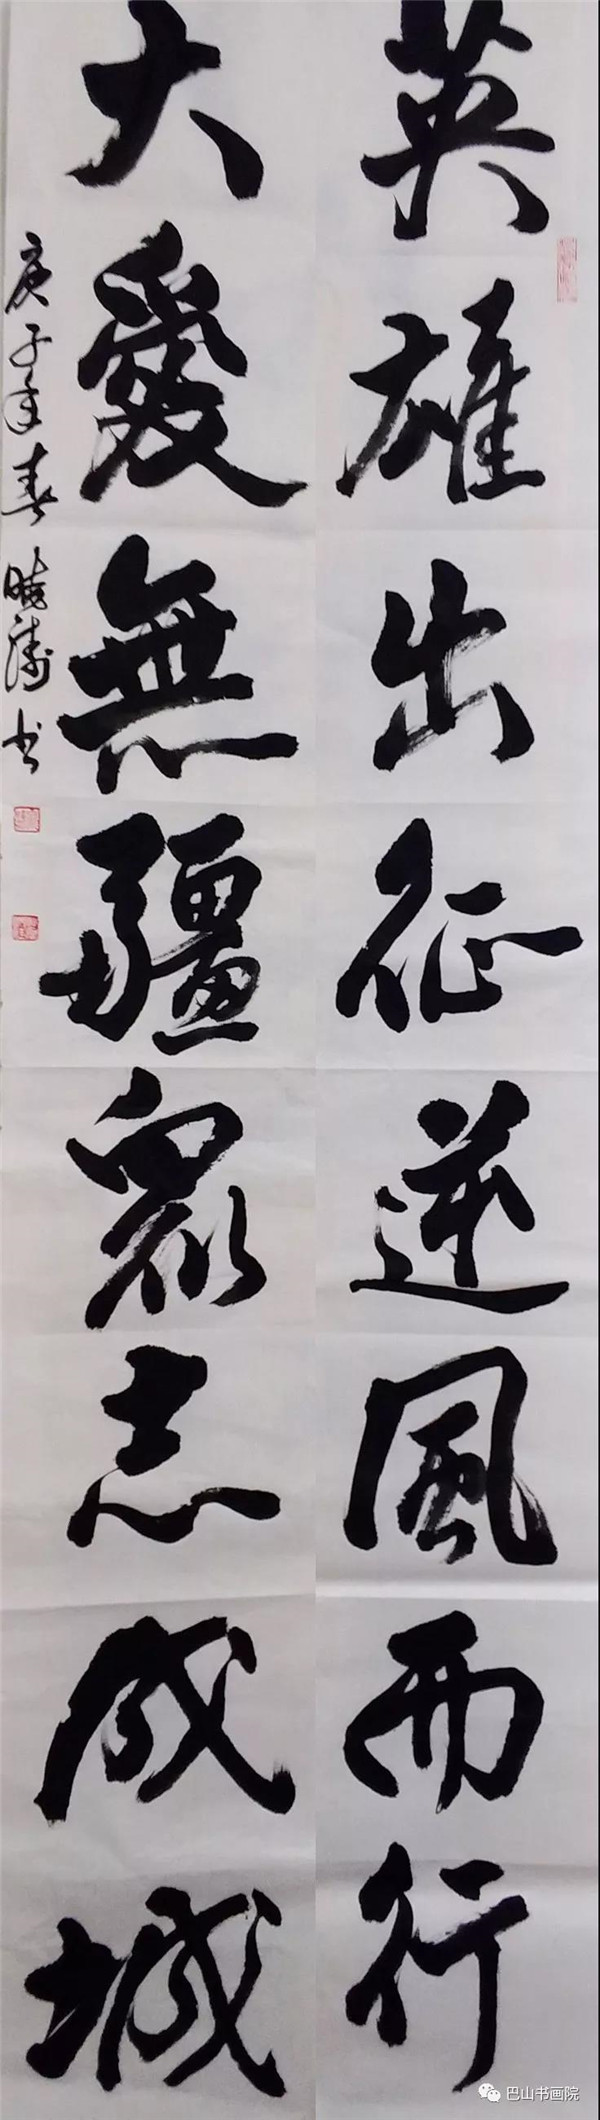 英雄出征逆風而行
大愛無疆眾志成城
庚子年春曉濤书
巴山书画院